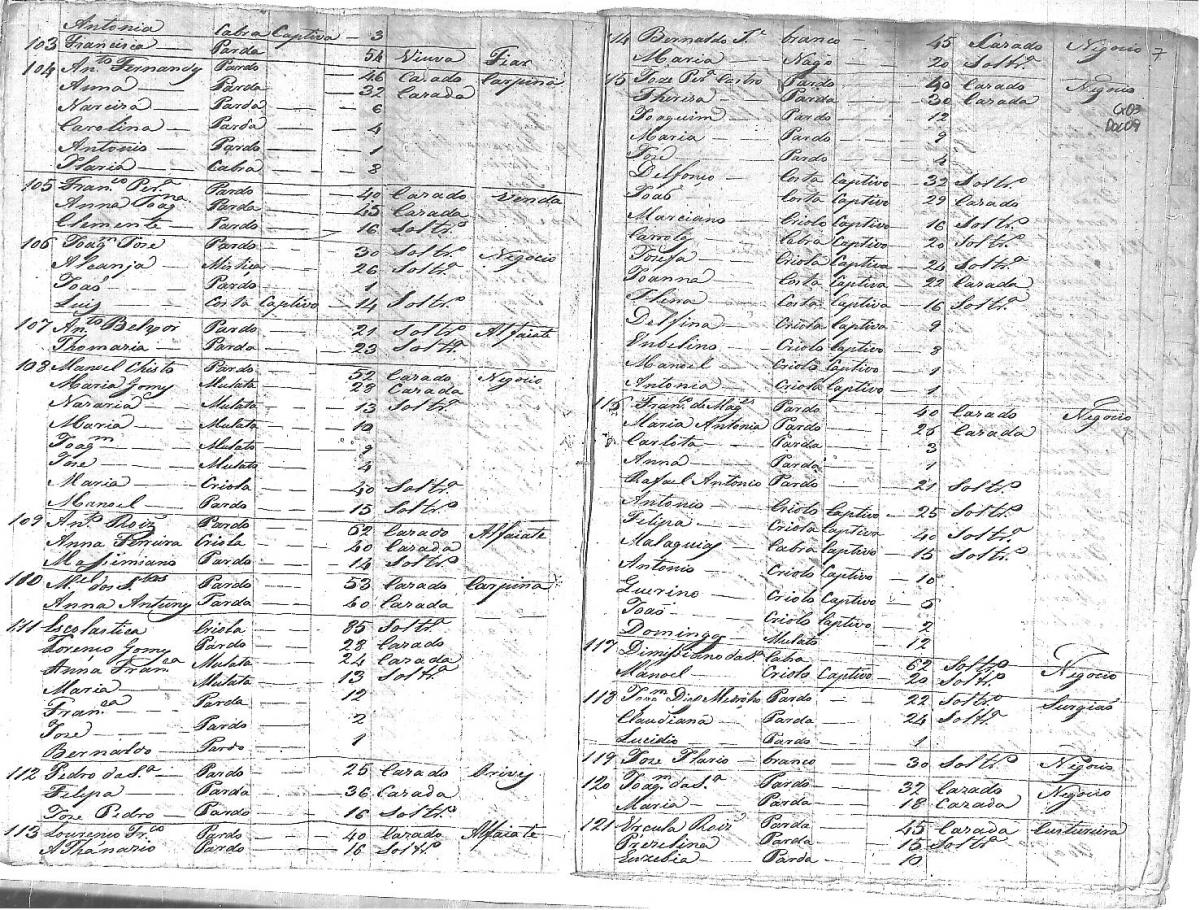 Antonia Cabra Captiva 3
103 Francisca Parda 54 Viuva Fiar
104 An.to Fernandz Pardo 46 Cazado Carpina
Anna Parda 32 Cazada
Narciza Parda 6
Carolina Parda 4
Antonio Pardo 1
Ilaria Cabra 8
105 Fran.co Per.a Pardo 40 Cazado Venda
Anna Joaq.na Parda 45 Cazada
Clemente Pardo 16 Soltr.o
106 Joaq.m Joze Pardo 30 Soltr.o Negocio
Alcanja Mistica 26 Soltr.a
Joaõ Pardo 1
Luiz Costa Captivo 14 Soltr.o
107 An.to Belxor Pardo 21 Soltr.o Alfaiate
Thomazia Parda 23 Soltr.a
108 Manoel Christo Pardo 52 Cazado Negocio
Maria Gomz Mulata 28 Cazada
Nazaria Mulata 13 Soltr.a
Maria Mulata 10
Joaq.m Mulato 9
Joze Mulato 4
Maria Criola 40 Soltr.a
Manoel Pardo 15 Soltr.o
109 An.to Roiz Pardo 62 Cazado Alfaiate
Anna Ferreira Criola 40 Cazada
Massimiano Pardo 14 Soltr.o
110 M.el dos S.tos Pardo 53 Cazado Carpina
Anna Antunz Parda 60 Cazada
111 Escolastica Criola 85 Soltr.a
Lorenco Gomz Pardo 28 Cazado
Anna Fran.ca Mulata 24 Cazada
Maria Mulata 13 Soltr.a
Fran.ca Parda 12
Joze Pardo 2
Bernaldo Pardo 1
112 Pedro da S.a Pardo 25 Cazado Orives
Felipa Parda 36 Cazada
Joze Pedro Pardo 16 Soltr.o
113 Lourenco Fr.co Pardo 40 Cazado Alfaiate
Athanazio Pardo 16 Soltr.o
7
Cx03
Doc09
114 Bernaldo branco 45 Cazado Negocio
Maria Nago 20 Soltr.a
115 Joze Per.a Castro Pardo 40 Cazado Negocio
Thereza Parda 30 Cazada
Joaquim Pardo 12
Maria Pardo 9
Joze Pardo 4
Delfonço Costa Captivo 32 Soltr.o
Joaõ Costa Captivo 29 Cazado
Marciano Criolo Captivo 16 Soltr.o
Carrolo Cabra Captivo 20 Soltr.o
Jozefa Criola Captiva 24 Soltr.a
Joanna Costa Captiva 22 Cazada
Costa Captiva 16 Soltr.a
Delfina Criola Captiva 9
Enbelino Criolo Captivo 8
Manoel Criolo Captivo 1
Antonia Criola Captiva 1
116 Fran.co de Mag.es Pardo 40 Cazado Negocio
Maria Antonia Parda 26 Cazada
Carlota Parda 3
Anna Parda 1
Rafael Antonio Pardo 21 Soltr.o
Antonio Criolo Captivo 25 Soltr.o
Felipa Criola Captiva 40 Soltr.a
Malaquias Cabra Captivo 15 Soltr.o
Antonio Criolo Captivo 10
Guerino Criolo Captivo 5
Joaõ Criolo Captivo 2
Domingos Mulato 12
117 Dimissiano da S.a Cabra 62 Soltr.o Negocio
Manoel Criolo Captivo 20 Soltr.o
118 Joaq.m Dias Pardo 22 Soltr.o Surgiaõ
Claudiana Parda 24 Soltr.a
Lucidio Pardo 1
119 Joze Ilario branco 30 Soltr.o Negocio
120 Joaq.m da S.a Pardo 32 Cazado Negocio
Maria Parda 18 Cazada
121 Urcula Roiz Parda 45 Cazada Custureira
Prezelina Parda 15 Soltr.a
Euzebia Parda 10